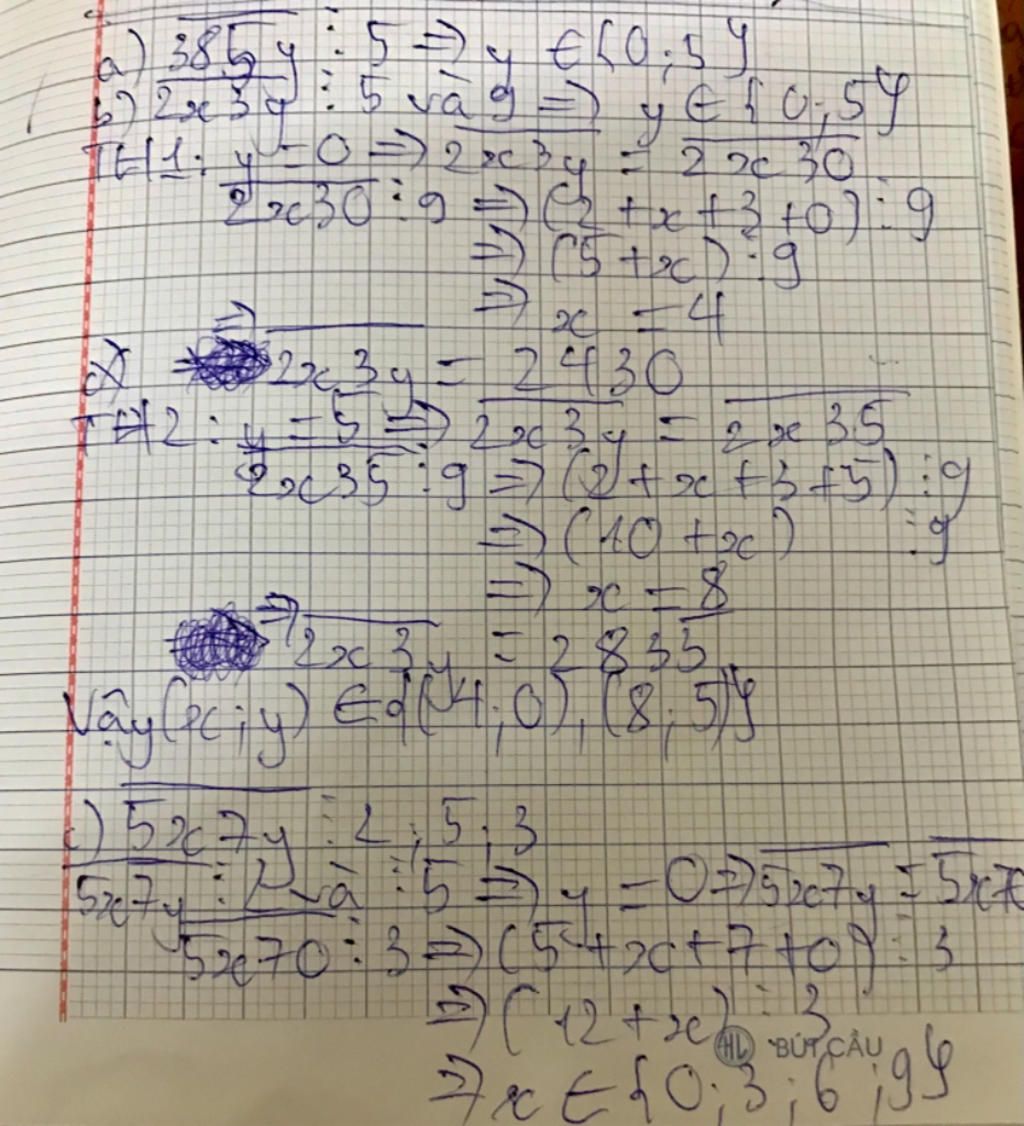 a) 385y ⋮ 5 ⇒ y ∈ {0; 5}
b) 2x3y ⋮ 5 và 9 ⇒ y ∈ {0; 5}
TH1: y = 0 ⇒ 2x3y = 2x30
2x30 ⋮ 9 ⇒ (2 + x + 3 + 0) ⋮ 9
⇒ (5 + x) ⋮ 9
⇒ x = 4
⇒ 2x3y = 2430
TH2: y = 5 ⇒ 2x3y = 2x35
2x35 ⋮ 9 ⇒ (2 + x + 3 + 5) ⋮ 9
⇒ (10 + x) ⋮ 9
⇒ x = 8
⇒ 2x3y = 2835
Vậy (x; y) ∈ {(4; 0), (8; 5)}
c) 5x7y ⋮ 2; 5; 3
5x7y ⋮ 2 và ⋮ 5 ⇒ y = 0 ⇒ 5x7y = 5x70
5x70 ⋮ 3 ⇒ (5 + x + 7 + 0) ⋮ 3
⇒ (12 + x) ⋮ 3
HL BÚT CẦU
⇒ x ∈ {0; 3; 6; 9}